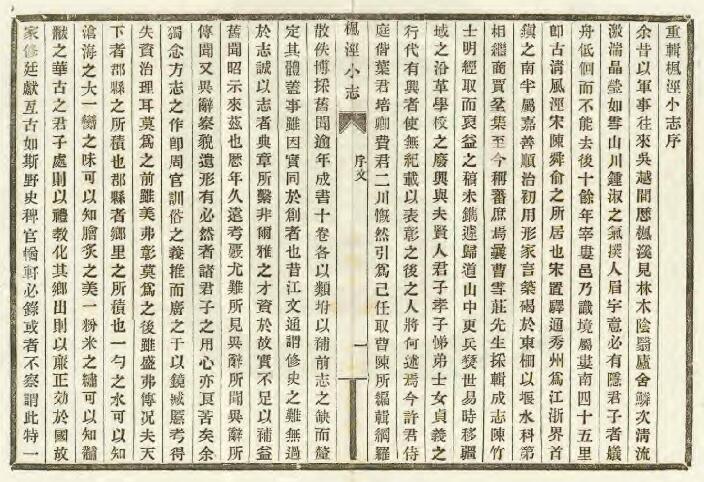 重輯楓涇小志序
余昔以軍事往來吳越間歷楓溪見林木陰翳廬舍鱗次清流
激湍晶瑩如雪山川鍾淑之氣撲人眉宇意必有隱君子者艤
舟低佪而不能去後十餘年宰婁邑乃識境屬婁南四十五里
即古清風涇宋陳舜俞之所居也宋置驛通秀州爲江浙界首
鎮之南半屬嘉善順治初用形家言築碣於東柵以堰水科第
相繼商賈坌集至今稱蕃庶焉曩曹雪莊先生採輯成志陳竹
士明經取而裒益之稿未鐫遽歸道山中更兵燹世易時移疆
域之沿革學校之廢興與夫賢人君子孝子悌弟士女貞義之
行代有興者使無紀載以表彰之後之人將何述焉今許君侍
庭偕葉君培卿費君二川慨然引爲己任取曹陳所編輯網羅
楓涇小志 序文 一
散佚博採舊聞逾年成書十卷各以類坿以補前志之缺而釐
定其體叢事雖因實同於創者也昔江文通謂修史之難無過
於志誠以志者典章所繫非爾雅之才資於故實不足以補益
舊聞昭示來茲也歷年久遠考覈尤難所見異辭所聞異辭所
傳聞又異辭察貌遺形有必然者諸君子之用心亦良苦矣余
獨念方志之作卽周官訓俗之義推而廣之于以鏡臧慝考得
失資治理耳莫爲之前雖美弗彰莫爲之後雖盛弗傳况夫天
下者郡縣之所積也郡縣者鄉里之所積也一勺之水可以知
滄海之大一臠之味可以知膾炙之美一粉米之繡可以知黼
黻之華古之君子處則以禮教化其鄉出則以嚴正効於國故
家修廷獻亙古如斯野史稗官輶軒必錄或者不察謂此特一